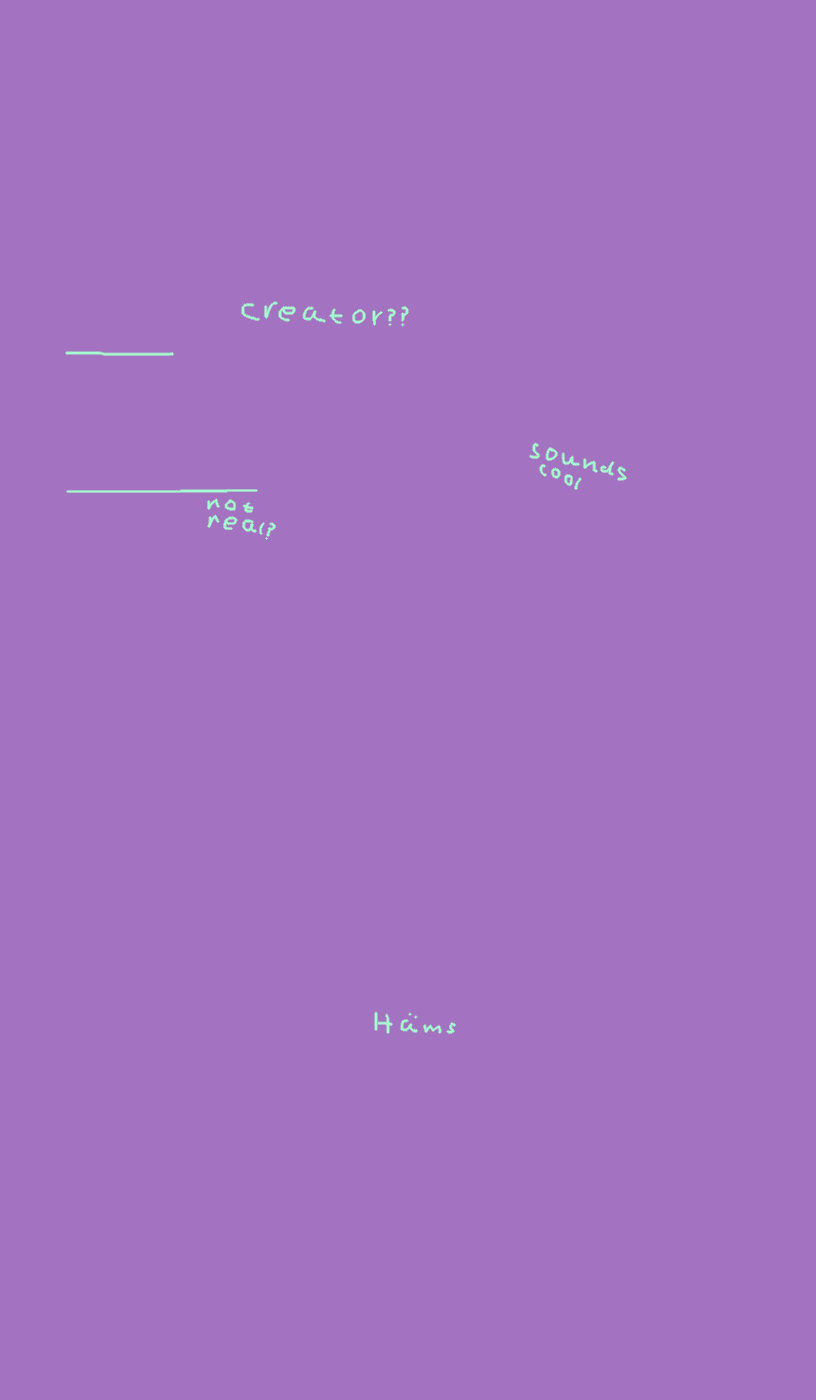 creator??
sounds
cool
not
real?
Häms